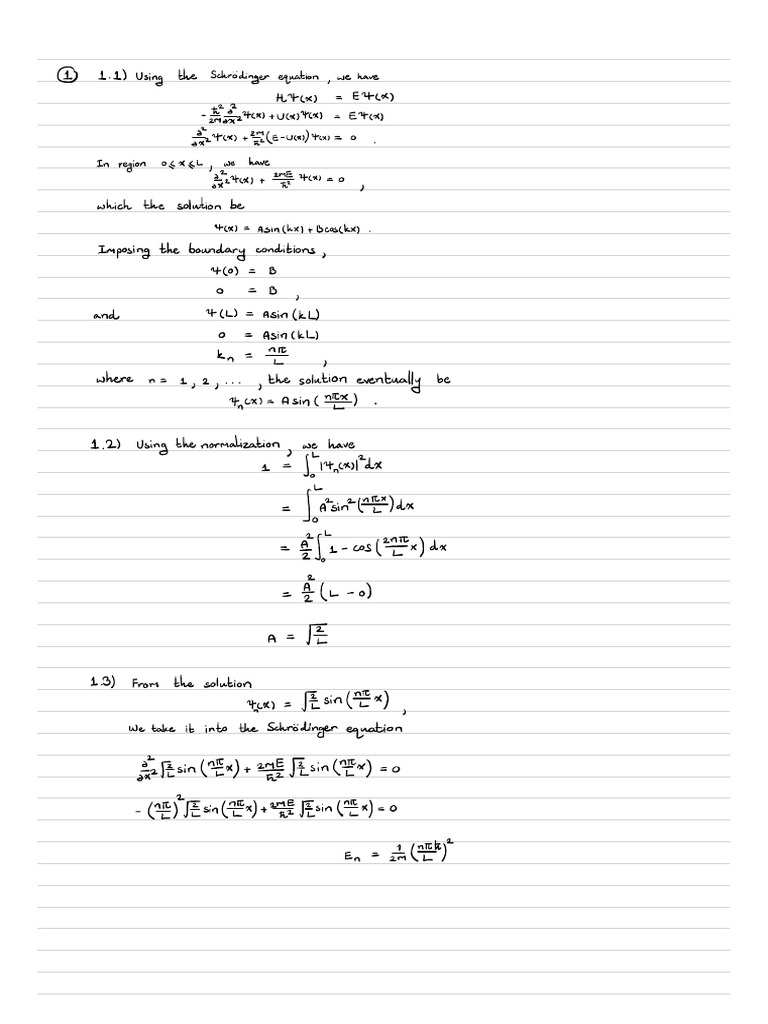 ① 1.1) Using the Schrödinger equation, we have
HΨ(x) = EΨ(x)
-ℏ²/2M ∂²/∂x² Ψ(x) + U(x)Ψ(x) = EΨ(x)
∂²/∂x² Ψ(x) + 2M/ℏ² (E-U(x))Ψ(x) = 0 .
In region 0⩽x⩽L, we have
∂²/∂x² Ψ(x) + 2ME/ℏ² Ψ(x) = 0 ,
which the solution be
Ψ(x) = Asin(kx) + Bcos(kx) .
Imposing the boundary conditions,
Ψ(0) = B
0 = B ,
and Ψ(L) = Asin(kL)
0 = Asin(kL)
kₙ = nπ/L ,
where n = 1, 2, ..., the solution eventually be
Ψₙ(x) = Asin(nπx/L) .
1.2) Using the normalization, we have
1 = ∫₀ᴸ |Ψₙ(x)|² dx
= ∫₀ᴸ A² sin²(nπx/L) dx
= A²/2 ∫₀ᴸ 1 - cos(2nπ/L x) dx
= A²/2 (L - 0)
A = √(2/L)
1.3) From the solution
Ψₙ(x) = √(2/L) sin(nπ/L x) ,
We take it into the Schrödinger equation
∂²/∂x² √(2/L) sin(nπ/L x) + 2ME/ℏ² √(2/L) sin(nπ/L x) = 0
-(nπ/L)² √(2/L) sin(nπ/L x) + 2ME/ℏ² √(2/L) sin(nπ/L x) = 0
Eₙ = 1/2M (nπℏ/L)²